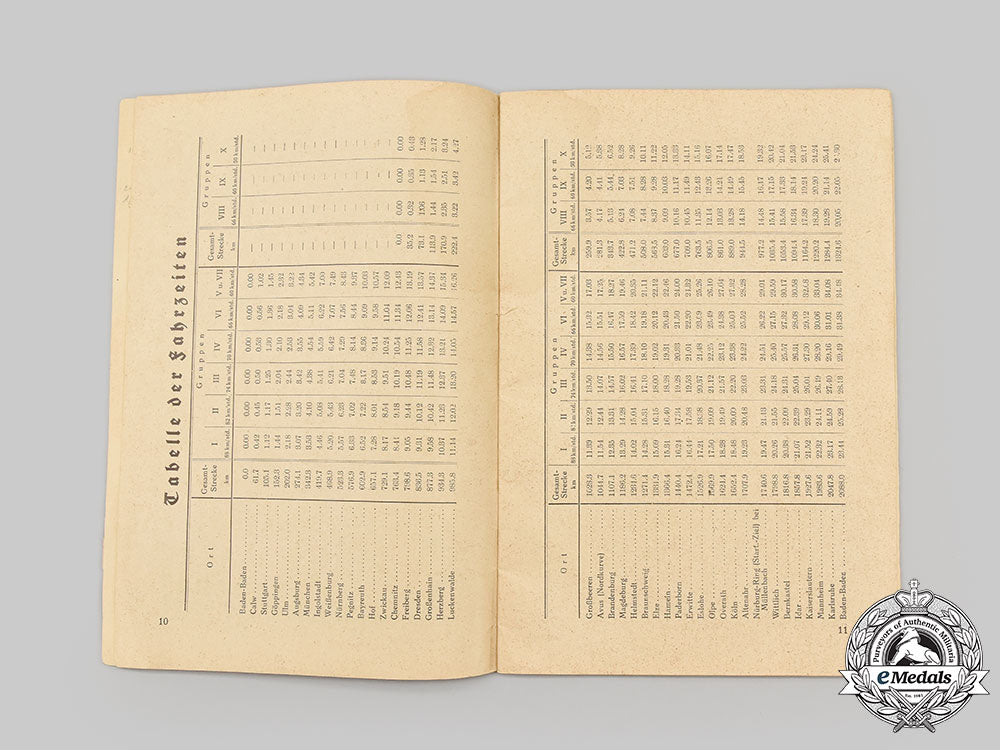 10
Tabelle der Fahrzeiten
Ort Gesamt-Strecke km Gruppen Gesamt-Strecke km Gruppen
I II III IV VI V u. VII VIII IX X
88 km/std. 82 km/std. 74 km/std. 70 km/std. 66 km/std. 60 km/std. 66 km/std. 60 km/std. 50 km/std.
Baden-Baden 0.0 0.00 0.00 0.00 0.00 0.00 0.00 — — — —
Calw 61.7 0.42 0.45 0.50 0.53 0.56 1.02 — — — —
Stuttgart 105.1 1.12 1.17 1.25 1.30 1.36 1.45 — — — —
Göppingen 152.3 1.44 1.51 2.04 2.10 2.18 2.32 — — — —
Ulm 202.0 2.18 2.28 2.44 2.53 3.04 3.22 — — — —
Augsburg 274.1 3.07 3.20 3.42 3.55 4.09 4.34 — — — —
München 342.3 3.53 4.10 4.38 4.54 5.11 5.42 — — — —
Ingolstadt 419.7 4.46 5.08 5.41 5.59 6.22 7.00 — — — —
Weißenburg 468.9 5.20 5.43 6.21 6.42 7.07 7.49 — — — —
Nürnberg 523.3 5.57 6.23 7.04 7.29 7.56 8.43 — — — —
Pegnitz 576.9 6.33 7.02 7.48 8.14 8.44 9.37 — — — —
Bayreuth 602.9 6.52 7.22 8.17 8.36 9.09 10.03 — — — —
Hof 657.1 7.28 8.01 8.53 9.14 9.58 10.57 — — — —
Zwickau 729.1 8.17 8.54 9.51 10.24 11.04 12.09 — — — —
Chemnitz 763.4 8.41 9.18 10.19 10.54 11.34 12.43 0.0 0.00 0.00 0.00
Freiberg 798.6 9.05 9.44 10.48 11.25 12.06 13.19 35.2 0.32 0.35 0.43
Dresden 836.5 9.31 10.12 11.19 11.58 12.41 13.57 73.1 1.06 1.13 1.28
Großenhain 877.3 9.58 10.42 11.48 12.32 13.14 14.37 113.9 1.44 1.54 2.17
Herzberg 934.3 10.37 11.23 12.37 13.21 14.09 15.34 170.9 2.35 2.51 3.24
Luckenwalde 985.8 11.14 12.02 13.20 14.05 14.57 16.26 222.4 3.22 3.42 4.27
Ort Gesamt-Strecke km Gruppen Gesamt-Strecke km Gruppen
I II III IV VI V u. VII VIII IX X
88 km/std. 82 km/std. 74 km/std. 70 km/std. 66 km/std. 60 km/std. 66 km/std. 60 km/std. 50 km/std.
Großbeeren 1023.3 11.39 12.29 13.50 14.38 15.32 17.03 259.9 3.57 4.20 5.12
Avus (Nordkurve) 1044.7 11.54 12.44 14.07 14.56 15.51 17.25 281.3 4.17 4.41 5.38
Brandenburg 1107.1 12.35 13.31 14.57 15.50 16.47 18.27 343.7 5.13 5.44 6.52
Magdeburg 1186.2 13.29 14.28 16.02 16.57 17.59 19.46 422.8 6.24 7.03 8.28
Helmstedt 1234.6 14.02 15.04 16.41 17.39 18.42 20.35 471.2 7.08 7.51 9.26
Braunschweig 1271.4 14.28 15.31 17.10 18.10 19.18 21.11 508.0 7.44 8.28 10.11
Elze 1331.9 15.09 16.15 18.00 19.02 20.12 22.12 568.5 8.37 9.28 11.22
Hameln 1366.4 15.31 16.40 18.28 19.31 20.43 22.46 603.0 9.09 10.03 12.05
Paderborn 1440.4 16.24 17.34 19.28 20.33 21.50 24.00 677.0 10.16 11.17 13.33
Erwitte 1472.4 16.44 17.58 19.53 21.01 22.20 709.0 10.45 11.49 14.11
Eslohe 1526.9 17.21 18.38 20.37 21.48 25.26 763.5 11.35 12.43 15.16
Olpe 1569.9 17.50 19.09 21.12 22.25 23.49 26.10 806.5 12.14 13.26 16.07
Overath 1624.4 18.28 19.49 21.57 23.12 24.38 27.04 861.0 13.03 14.21 17.14
Köln 1652.4 18.48 20.09 22.20 23.38 25.03 27.32 889.0 13.28 14.49 17.47
Altenahr 1707.9 19.23 20.48 23.03 24.22 25.52 28.28 944.5 14.18 15.45 18.53
Nürburg-Ring (Start-Ziel) bei
Müllenbach 1740.6 19.47 21.13 23.31 24.51 26.22 29.01 977.2 14.48 16.17 19.32
Wittlich 1798.8 20.26 21.55 24.18 25.40 27.15 29.59 1035.4 15.41 17.15 20.42
Bernkastel 1816.8 20.38 22.09 24.31 25.57 27.32 30.17 1053.4 15.58 17.33 21.04
Idar 1857.8 21.07 22.39 25.04 26.31 28.08 30.58 1094.4 16.34 18.14 21.53
Kaiserslautern 1927.6 21.52 23.29 26.01 27.30 29.12 32.08 1164.2 17.39 19.24 23.17
Mannheim 1983.6 22.32 24.11 26.19 28.30 30.06 33.04 1220.2 18.30 20.20 24.24
Karlsruhe 2047.8 23.17 24.59 27.40 29.16 31.01 34.08 1284.4 19.28 21.24 25.41
Baden-Baden 2088.0 23.44 25.28 28.13 29.49 31.38 34.48 1324.6 20.05 22.05
11
Purveyors of Authentic Militaria
eMedals
Est. 1985